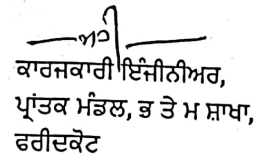 ਸਹੀ
ਕਾਰਜਕਾਰੀ ਇੰਜੀਨੀਅਰ,
ਪ੍ਰਾਂਤਕ ਮੰਡਲ, ਭ ਤੇ ਮ ਸ਼ਾਖਾ,
ਫਰੀਦਕੋਟ